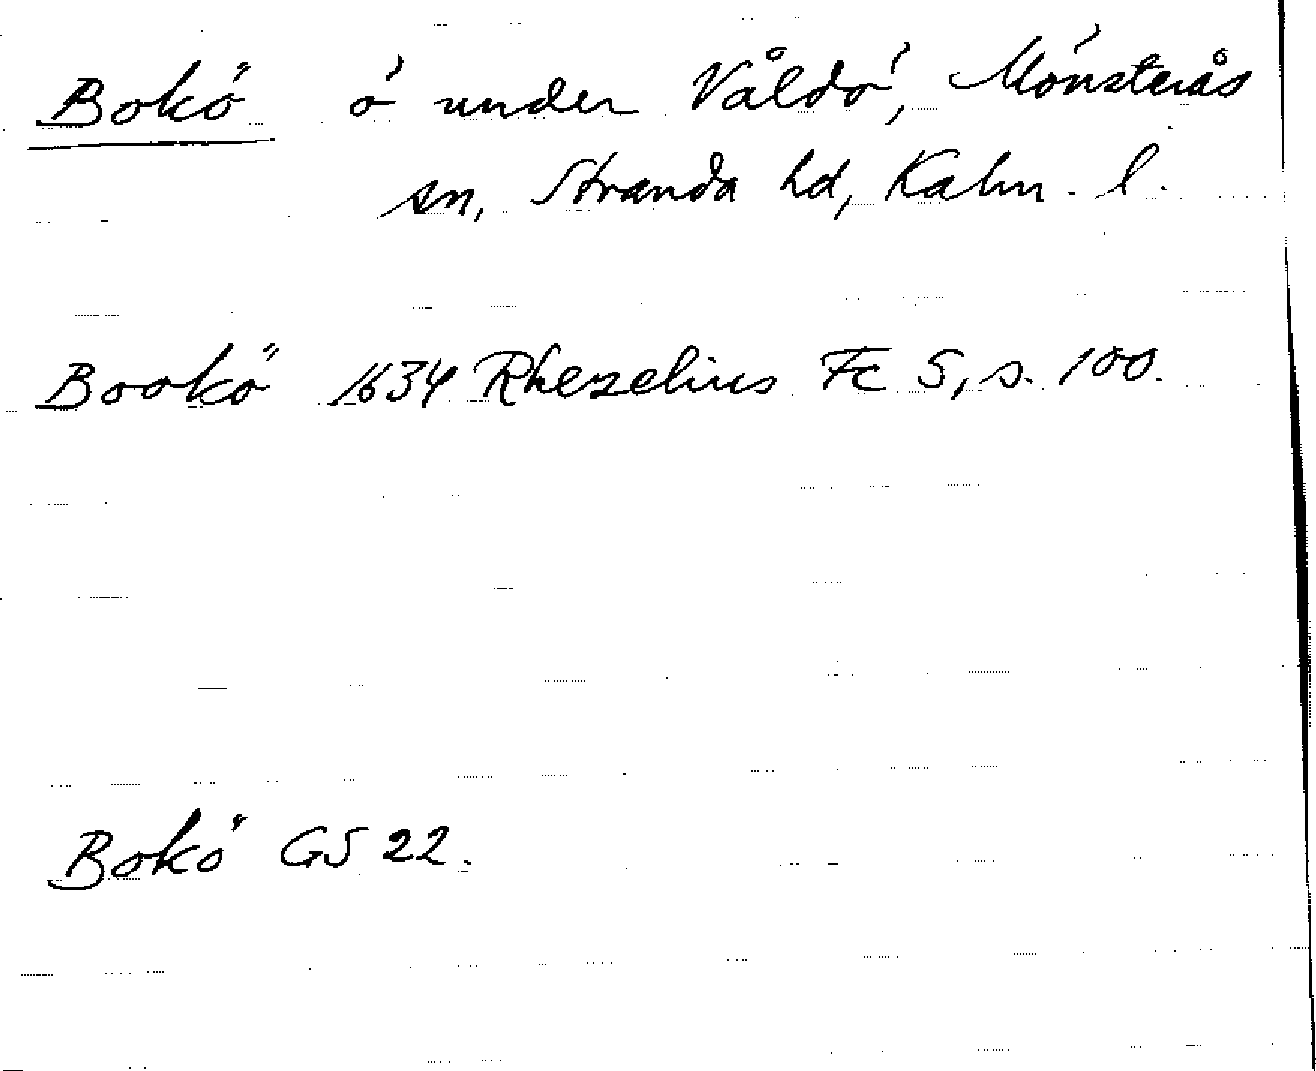 Bokö ö under Våldö, Mönsterås
sn, Stranda hd, Kalm. l.
Bookö 1634 Rhezelius Fc 5, s. 100.
Bokö GS 22.